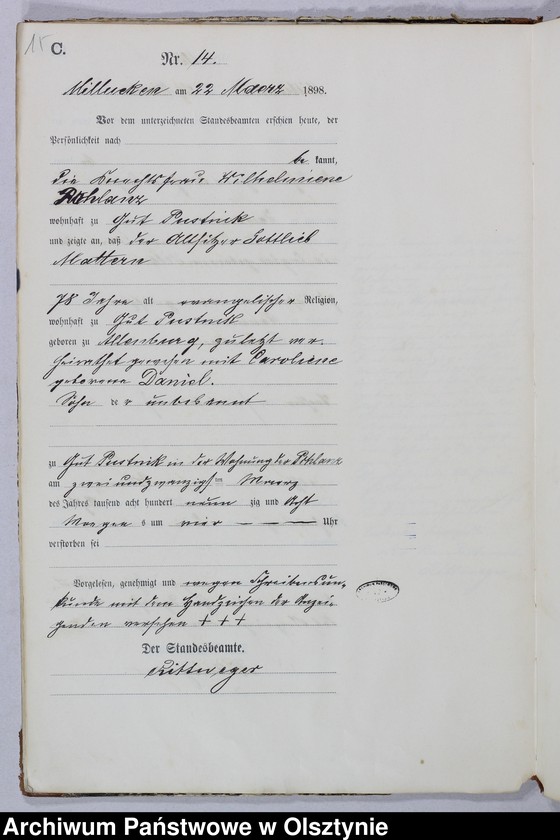 15 C.
Nr. 14.
Millucken am 22 Maerz 1898.
Vor dem unterzeichneten Standesbeamten erschien heute, der
Persönlichkeit nach
be kannt,
die Knechtsfrau Wilhelmiene
wohnhaft zu Gut Pustnick
und zeigte an, daß der Altsitzer Gottlieb
Mattern
78 Jahre alt evangelischer Religion,
wohnhaft zu Gut Pustnick
geboren zu Altenburg, zuletzt ver.
heirathet gewesen mit Caroliene
geborene Daniel.
Sohn de r unbekannt
zu Gut Pustnik in der Wohnung der
am zweiundzwanzigsten Maerz
des Jahres tausend acht hundert neun zig und Acht
Morgen s um vier — — — Uhr
verstorben sei
Vorgelesen, genehmigt und wegen Schreibensun-
kunde mit dem Handzeichen der Anzei-
genden versehen + + +
Der Standesbeamte.
Rittweger
Archiwum Państwowe w Olsztynie